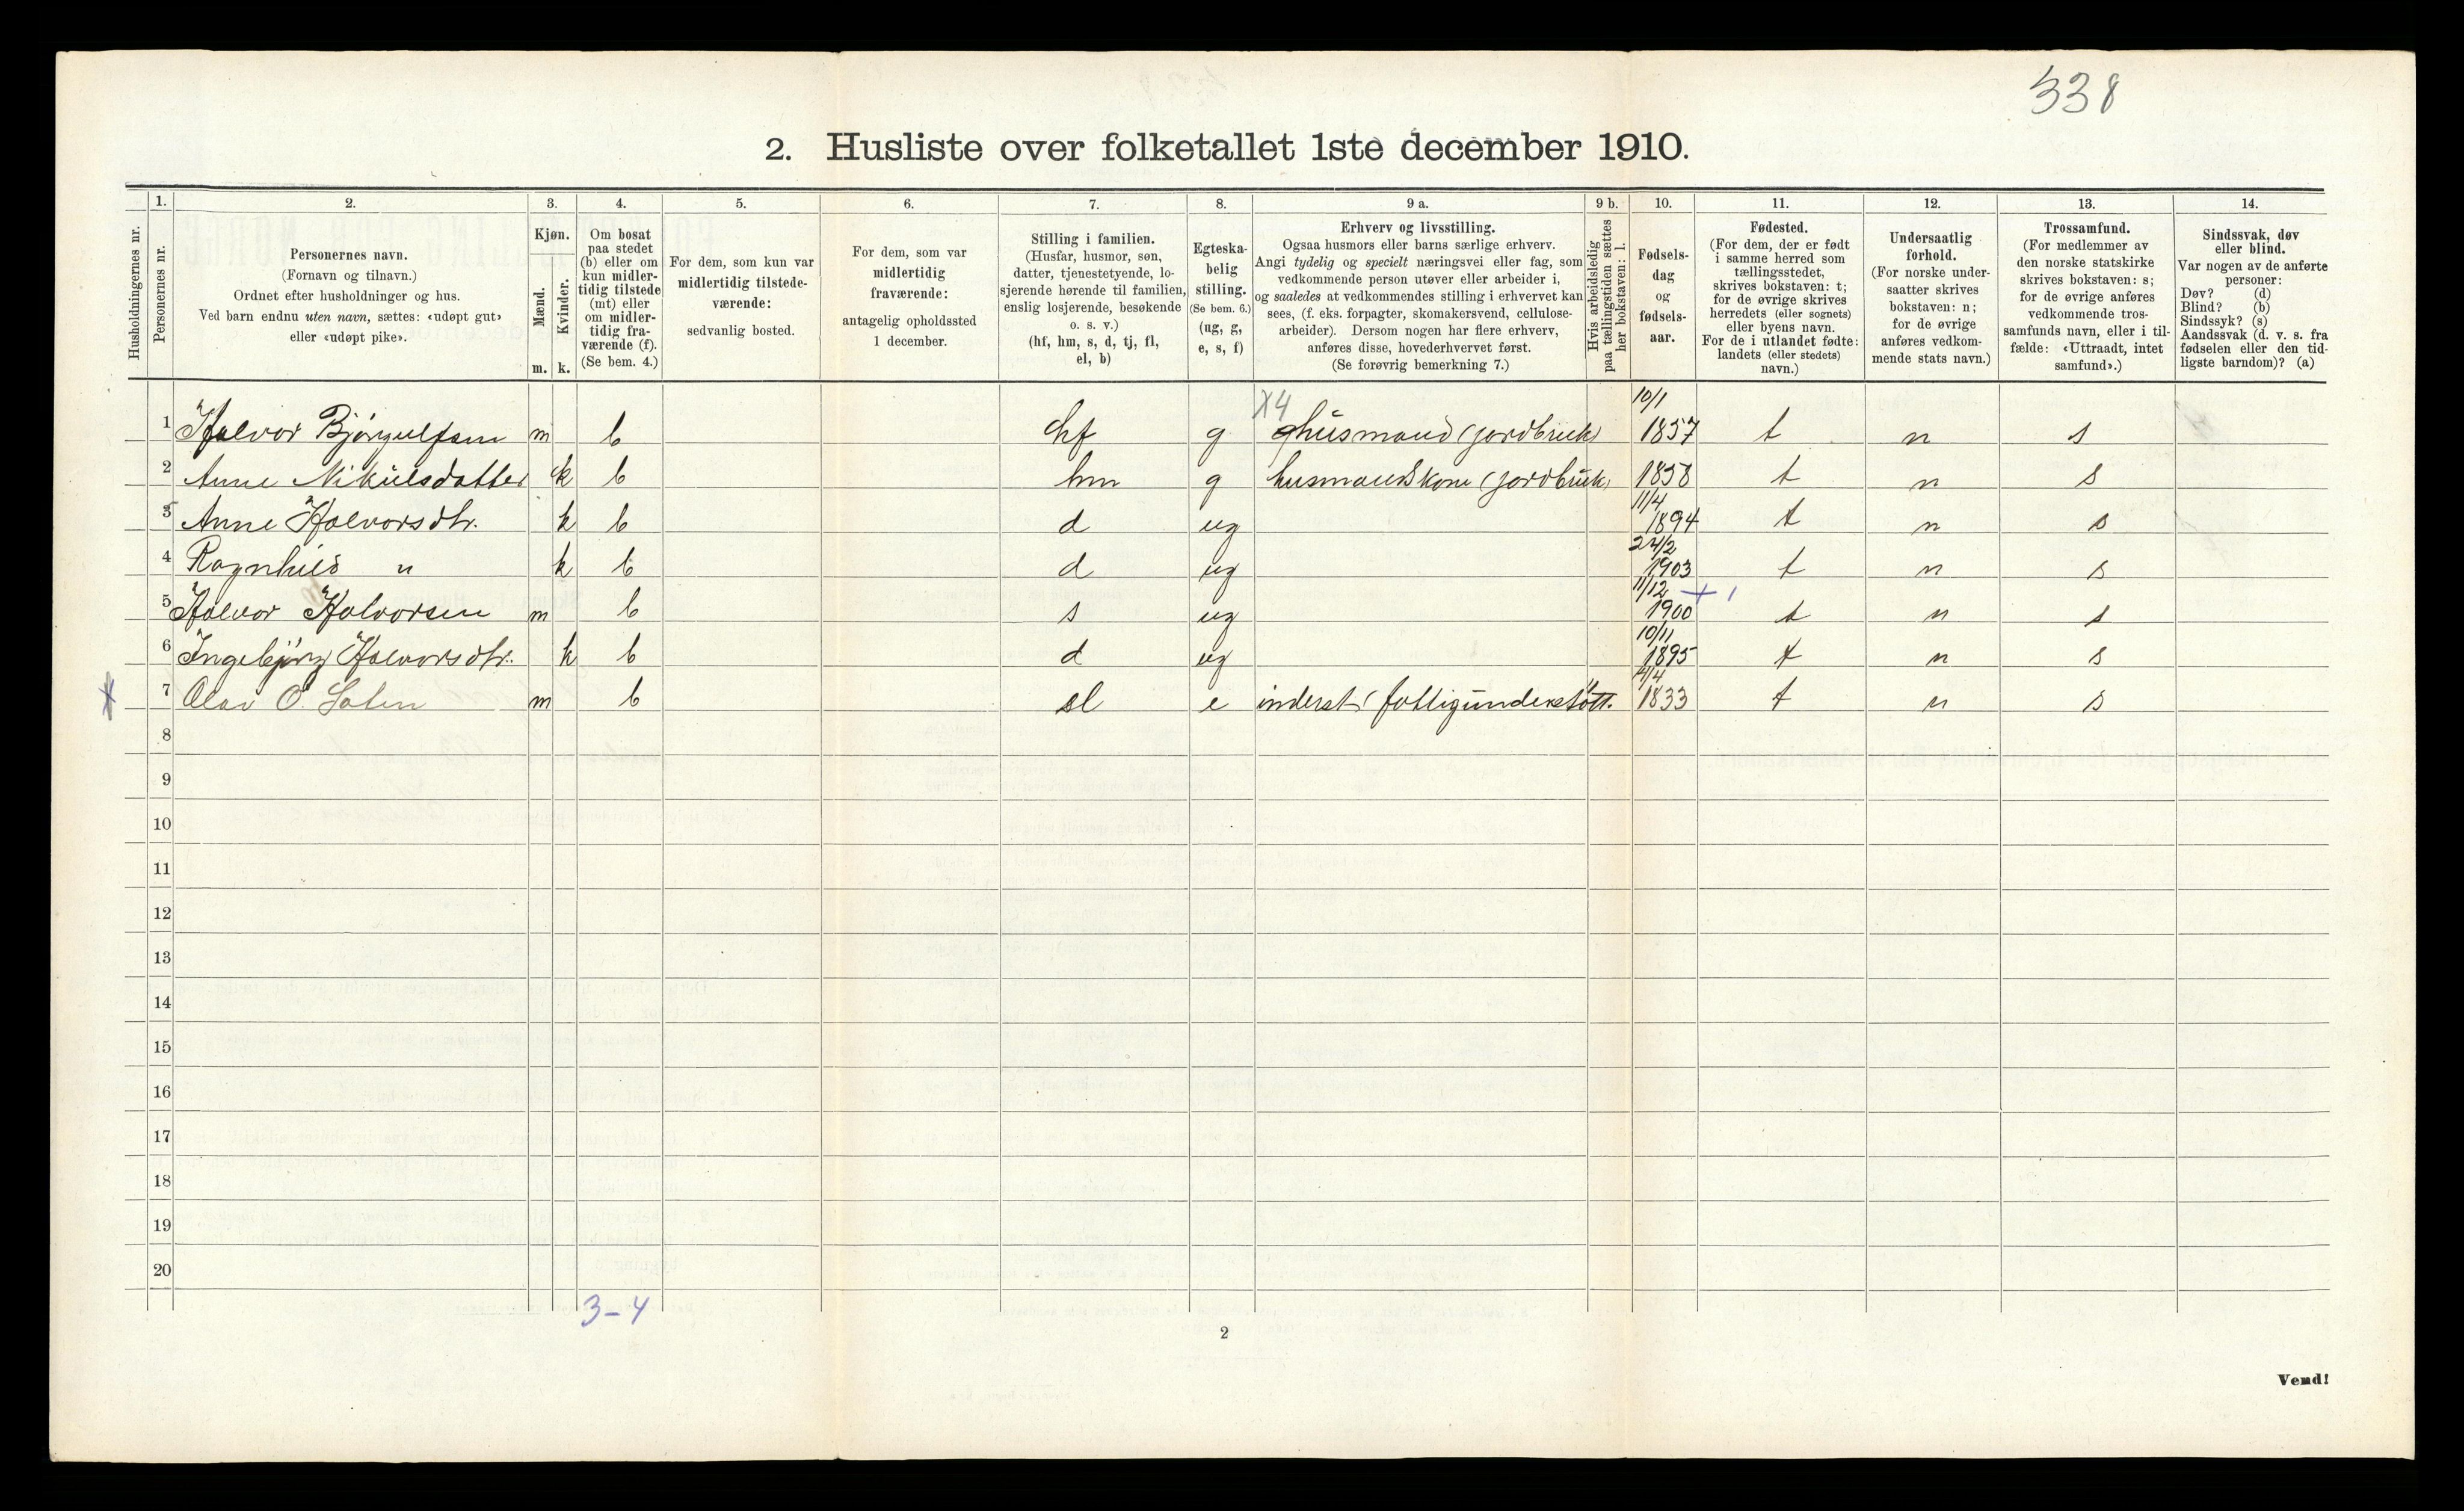 338
2. Husliste over folketallet 1ste december 1910.
Husholdningernes nr.
1. Personernes nr.
2. Personernes navn.
(Fornavn og tilnavn.)
Ordnet efter husholdninger og hus.
Ved barn endnu uten navn, sættes: «udøpt gut»
eller «udøpt pike».
3. Kjøn.
Mænd. m.
Kvinder. k.
4. Om bosat
paa stedet
(b) eller om
kun midler-
tidig tilstede
(mt) eller
om midler-
tidig fra-
værende (f).
(Se bem. 4.)
5. For dem, som kun var
midlertidig tilstede-
værende:
sedvanlig bosted.
6. For dem, som var
midlertidig
fraværende:
antagelig opholdssted
1 december.
7. Stilling i familien.
(Husfar, husmor, søn,
datter, tjenestetyende, lo-
sjerende hørende til familien,
enslig losjerende, besøkende
o. s. v.)
(hf, hm, s, d, tj, fl,
el, b)
8. Egteska-
belig
stilling.
(Se bem. 6.)
(ug, g,
e, s, f)
9 a. Erhverv og livsstilling.
Ogsaa husmors eller barns særlige erhverv.
Angi tydelig og specielt næringsvei eller fag, som
vedkommende person utøver eller arbeider i,
og saaledes at vedkommendes stilling i erhvervet kan
sees, (f. eks. forpagter, skomakersvend, cellulose-
arbeider). Dersom nogen har flere erhverv,
anføres disse, hovederhvervet først.
(Se forøvrig bemerkning 7.)
9 b. Hvis arbeidsledig
paa tællingstiden sættes
her bokstaven: l.
10. Fødsels-
dag
og
fødsels-
aar.
11. Fødested.
(For dem, der er født
i samme herred som
tællingsstedet,
skrives bokstaven: t;
for de øvrige skrives
herredets (eller sognets)
eller byens navn.
For de i utlandet fødte:
landets (eller stedets)
navn.)
12. Undersaatlig
forhold.
(For norske under-
saatter skrives
bokstaven: n;
for de øvrige
anføres vedkom-
mende stats navn.)
13. Trossamfund.
(For medlemmer av
den norske statskirke
skrives bokstaven: s;
for de øvrige anføres
vedkommende tros-
samfunds navn, eller i til-
fælde: «Uttraadt, intet
samfund».)
14. Sindssvak, døv
eller blind.
Var nogen av de anførte
personer:
Døv? (d)
Blind? (b)
Sindssyk? (s)
Aandssvak (d. v. s. fra
fødselen eller den tid-
ligste barndom)? (a)
X4 10/1
1 Halvor Bjørgulfsen m b hf g husmand (jordbruk) 1857 t n s
2 Anne Nikulsdatter k b hm g husmandskone (jordbruk) 1858 t n s
11/4
3 Anne Halvorsdtr. k b d ug 1894 t n s
24/2
4 Ragnhild " k b d ug 1903 t n s
11/12 + 1
5 Halvor Halvorsen m b s ug 1900 t n s
10/11
6 Ingebjørg Halvorsdtr. k b d ug 1895 t n s
4/4
X 7 Olav O. m b el e inderst (fattigunderstøtt. 1833 t n s
8
9
10
11
12
13
14
15
16
17
18
19
20
3-4
2
Vend!